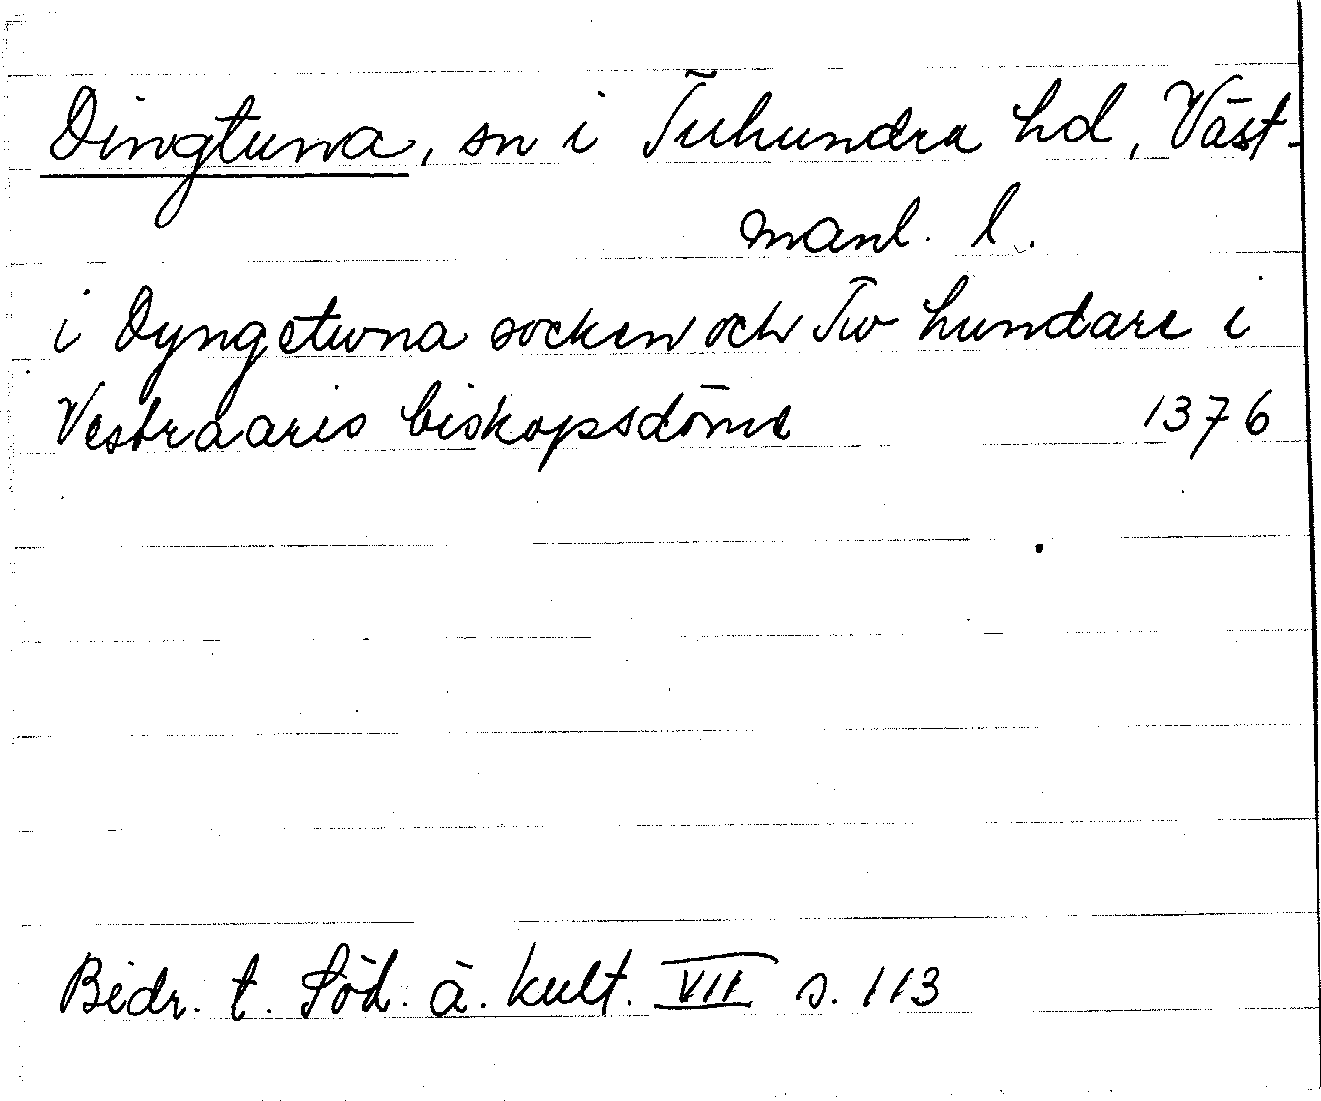 Dingtuna, sn i Tuhundra hd, Väst-
manl. l.
i Dyngetwna socken och Tw hundare i
Vestraaris biskopsdöme 1376
Bidr. t. Söd. ä. kult. VII s. 113